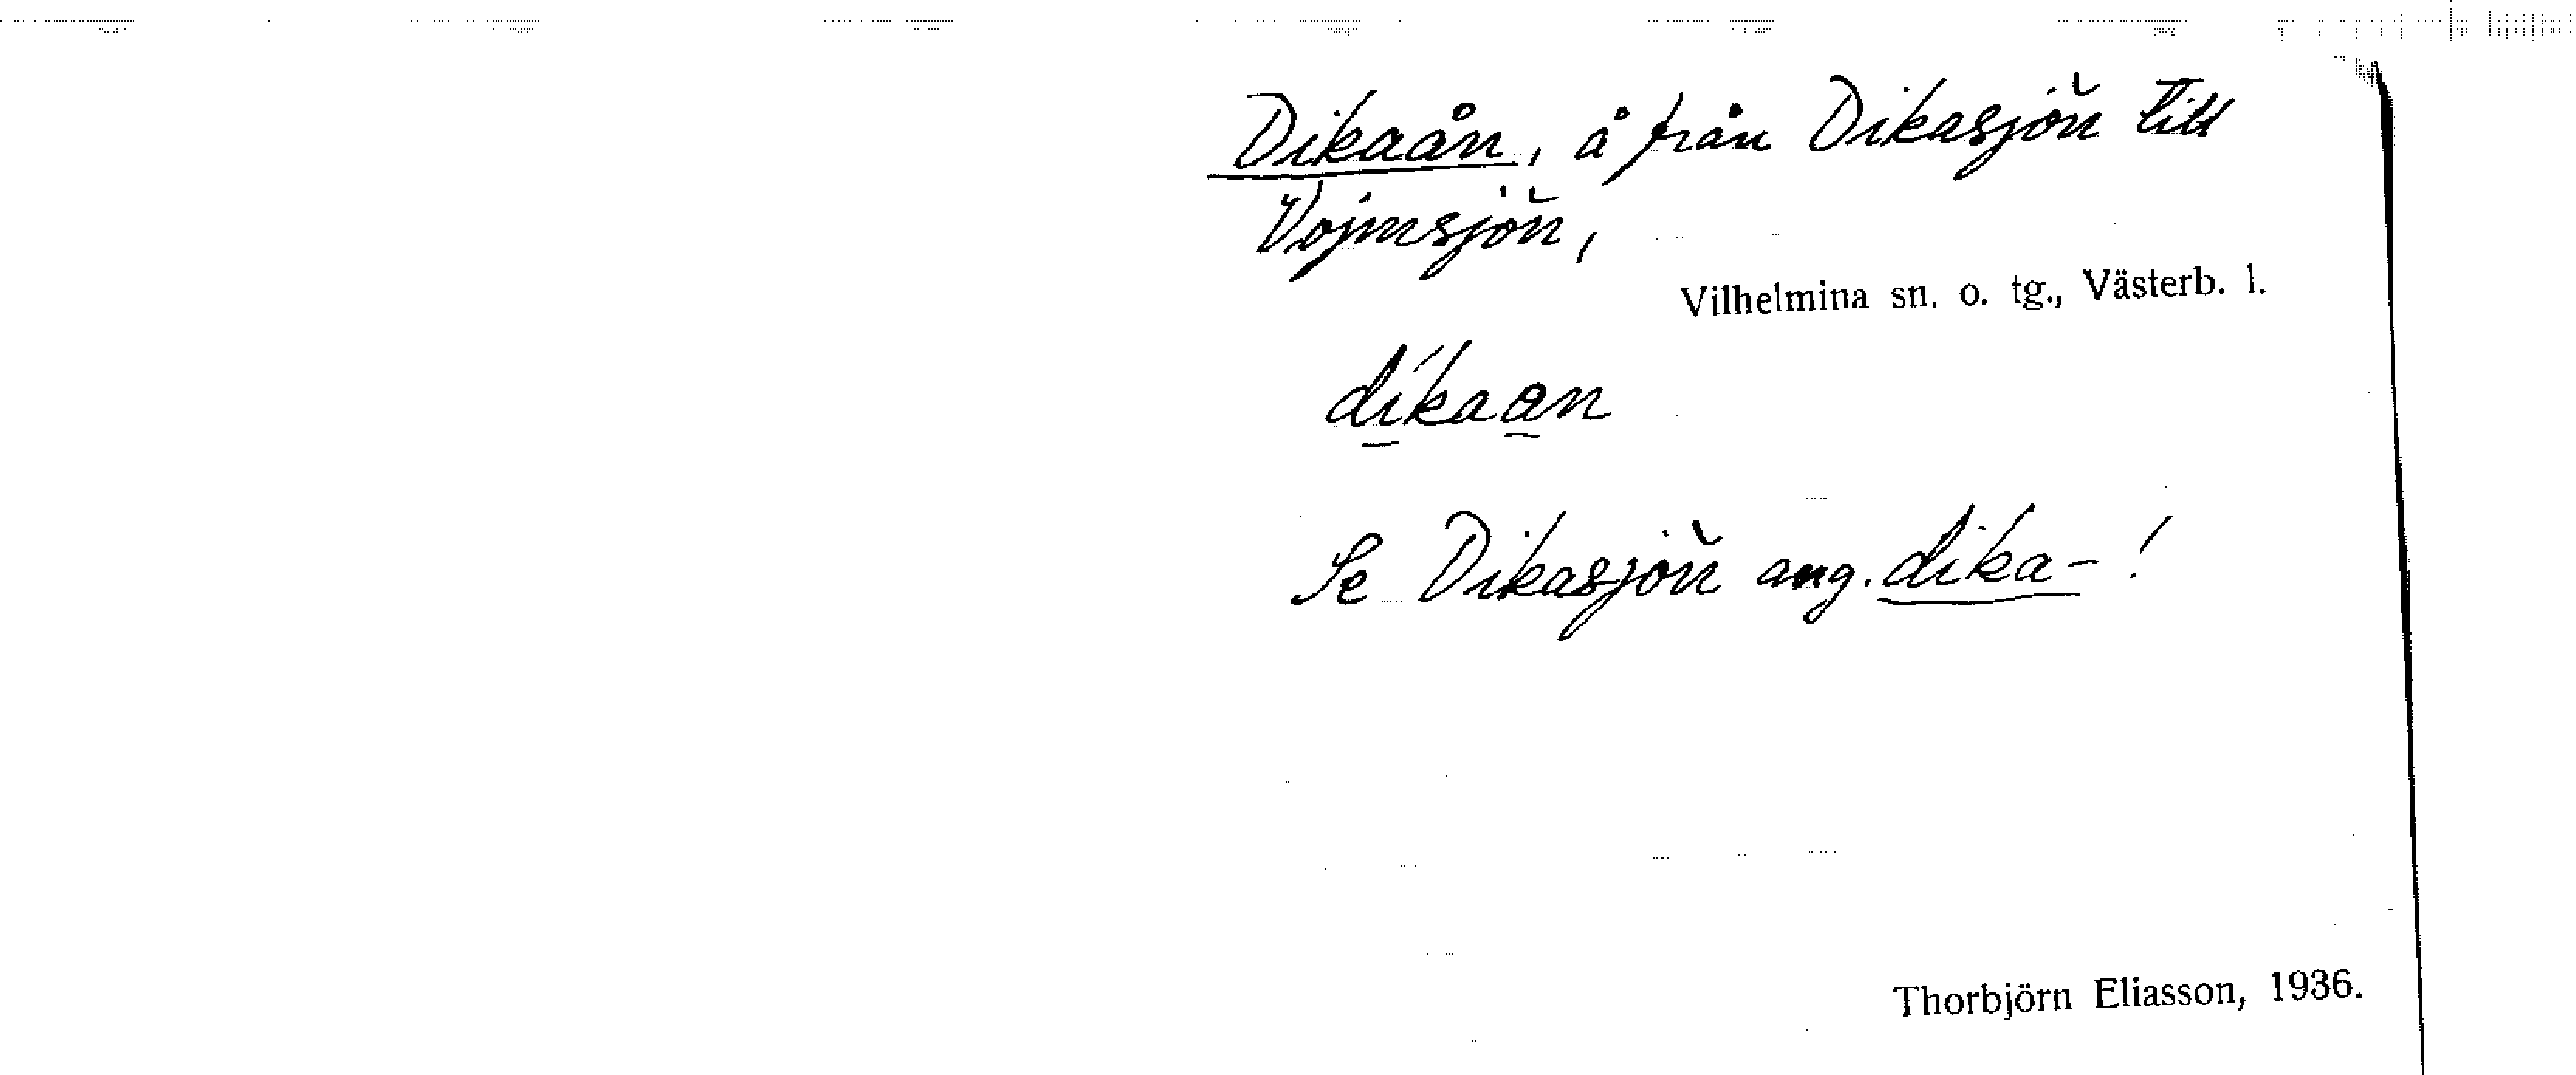 Dikaån, å från Dikasjön till
Vojmsjön,
Vilhelmina sn. o. tg., Västerb. l.
díkaan
Se Dikasjön ang. dika- !
Thorbjörn Eliasson, 1936.